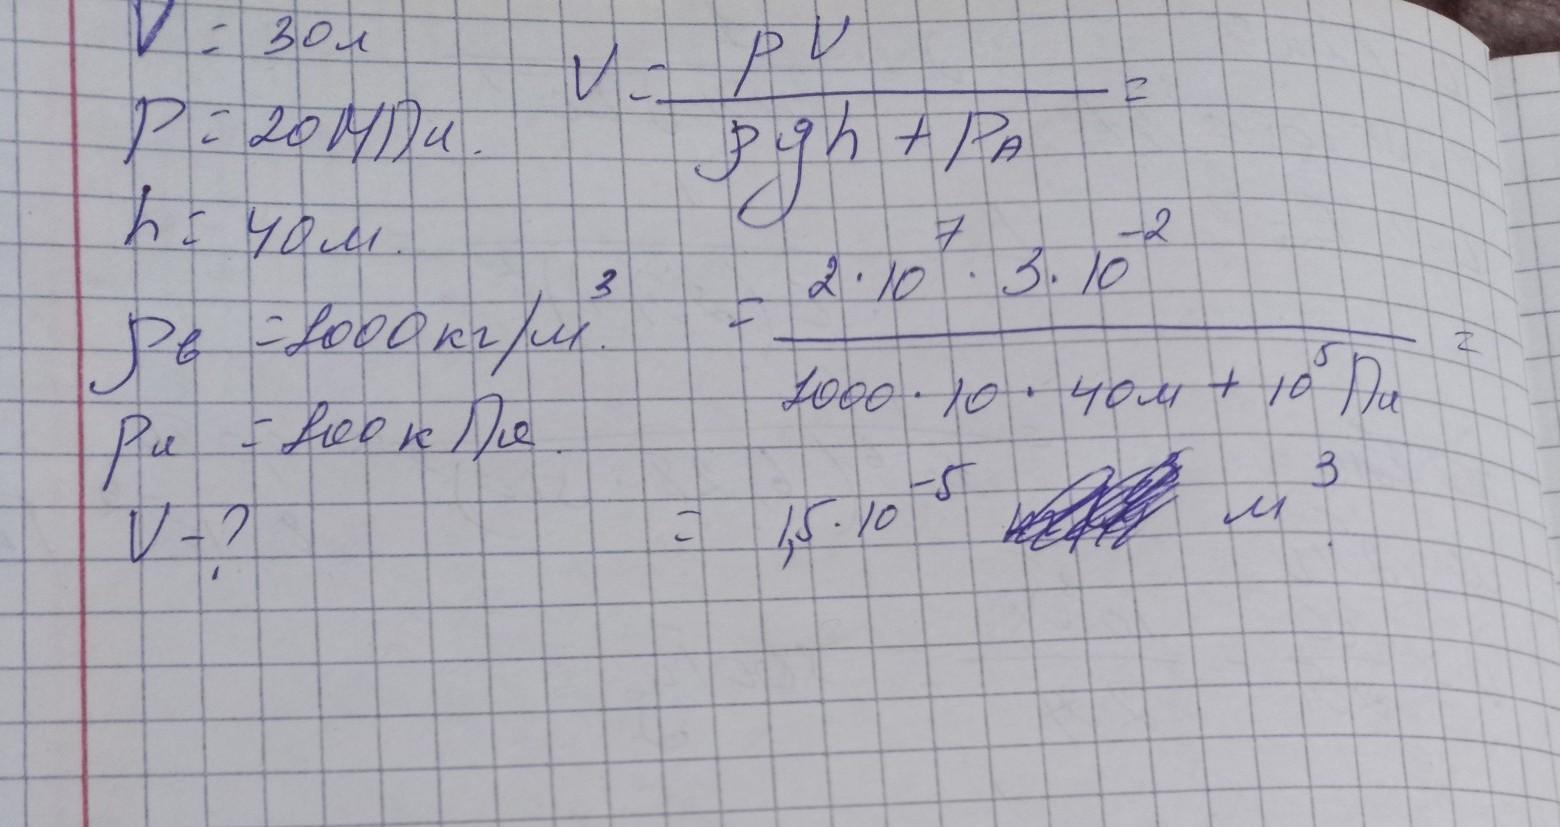 V = 30л
P = 20МПа.
h = 40м.
ρв = 1000кг/м³.
pа = 100кПа.
V - ?
V = pV / ρgh + PA =
= 2·10⁷·3·10⁻² / 1000·10·40м + 10⁵Па =
= 1,5·10⁻⁵ м³.